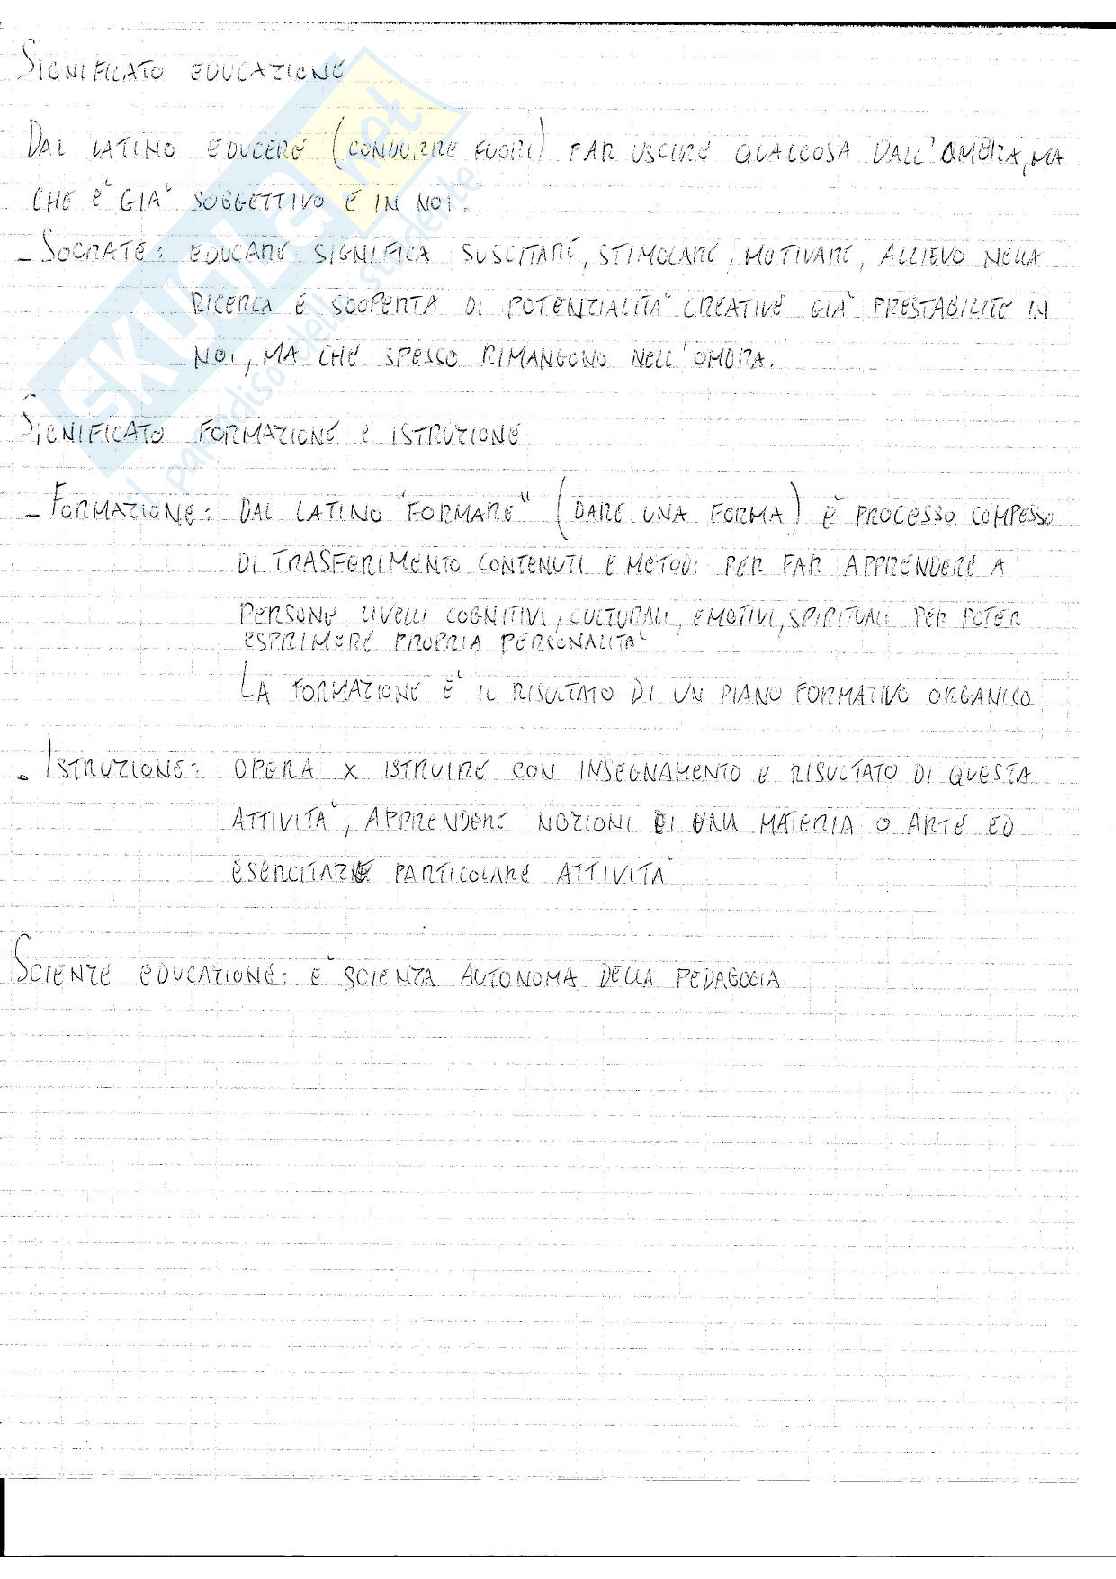 SIGNIFICATO EDUCAZIONE
DAL LATINO EDUCERE (CONDURRE FUORI) FAR USCIRE QUALCOSA DALL'OMBRA, MA
CHE È GIÀ SOGGETTIVO E IN NOI.
- SOCRATE: EDUCARE SIGNIFICA SUSCITARE, STIMOLARE, MOTIVARE, ALLIEVO NELLA
RICERCA E SCOPERTA DI POTENZIALITÀ CREATIVE GIÀ PRESTABILITE IN
NOI, MA CHE SPESSO RIMANGONO NELL'OMBRA.
SIGNIFICATO FORMAZIONE E ISTRUZIONE
- FORMAZIONE: DAL LATINO "FORMARE" (DARE UNA FORMA) È PROCESSO COMPESSO
DI TRASFERIMENTO CONTENUTI E METODI PER FAR APPRENDERE A
PERSONE LIVELLI COGNITIVI, CULTURALI, EMOTIVI, SPIRITUALI PER POTER
ESPRIMERE PROPRIA PERSONALITÀ
LA FORMAZIONE È IL RISULTATO DI UN PIANO FORMATIVO ORGANICO
- ISTRUZIONE: OPERA X ISTRUIRE CON INSEGNAMENTO E RISULTATO DI QUESTA
ATTIVITÀ, APPRENDERE NOZIONI DI UNA MATERIA O ARTE ED
ESERCITARE PARTICOLARE ATTIVITÀ
SCIENZE EDUCAZIONE: È SCIENZA AUTONOMA DELLA PEDAGOGIA
SKUOLA.net
il paradiso dello studente